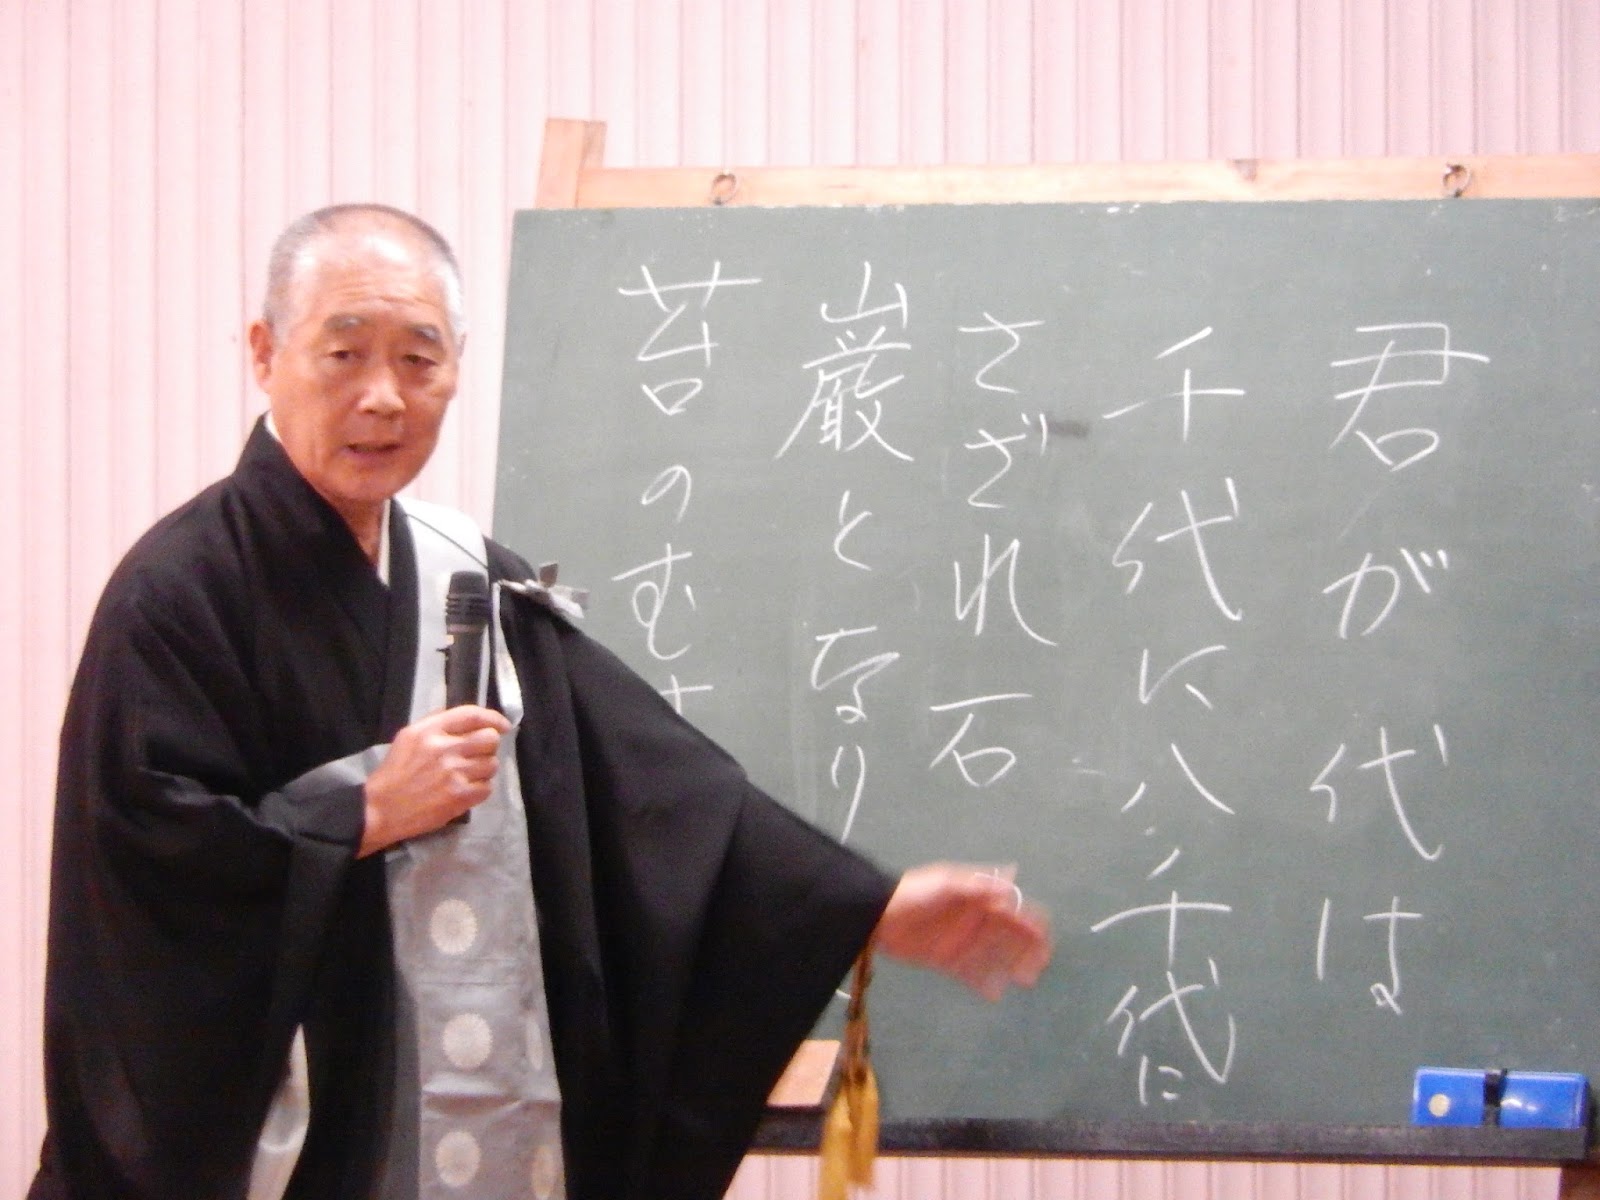 君が代は
千代に八千代に
さざれ石
巌となり
苔のむ